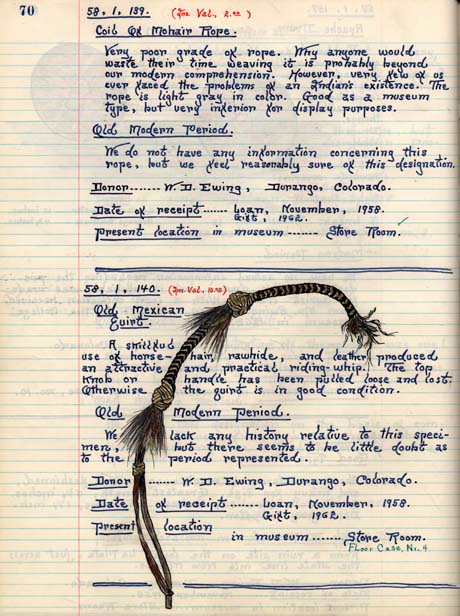 70
58, 1, 139. (Ins. Val., 2.00)
Coil Of Mohair Rope.
Very poor grade of rope. Why anyone would
waste their time weaving it is probably beyond
our modern comprehension. However, very few of us
ever faced the problems of an Indian's existence. The
rope is light gray in color. Good as a museum
type, but very inferior for display purposes.
Old Modern Period.
We do not have any information concerning this
rope, but we feel reasonably sure of this designation.
Donor....... W. D. Ewing, Durango, Colorado.
Date of receipt ...... Loan, November, 1958.
Gift, 1962.
Present location in museum ....... Store Room.
58, 1, 140. (Ins. Val., 10.00)
Old Mexican
Quirt.
A skillful
use of horse-hair, rawhide, and leather produced
an attractive and practical riding-whip. The top
knob or handle has been pulled loose and lost.
Otherwise the quirt is in good condition.
Old Modern Period.
We lack any history relative to this speci-
men, but there seems to be little doubt as
to the period represented.
Donor ...... W. D. Ewing, Durango, Colorado.
Date of receipt ...... Loan, November, 1958.
Gift, 1962.
Present location
in museum ...... Store Room.
Floor Case, No. 4